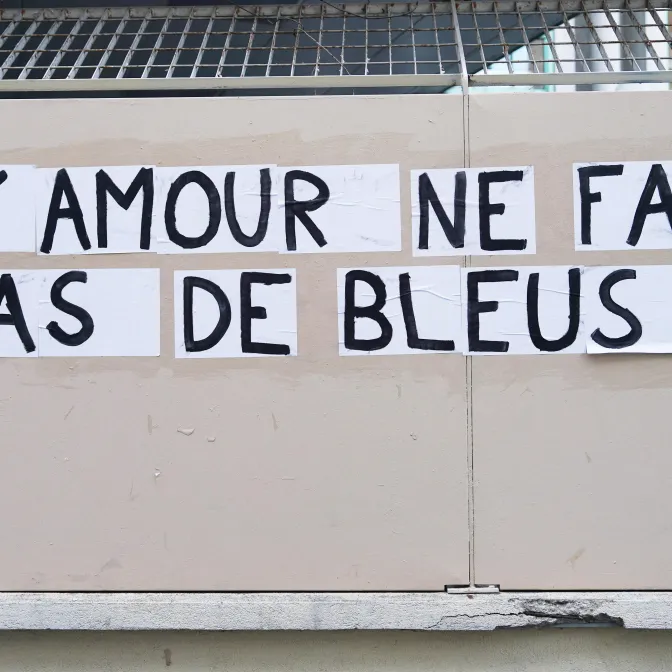 L'AMOUR NE FA
AS DE BLEUS